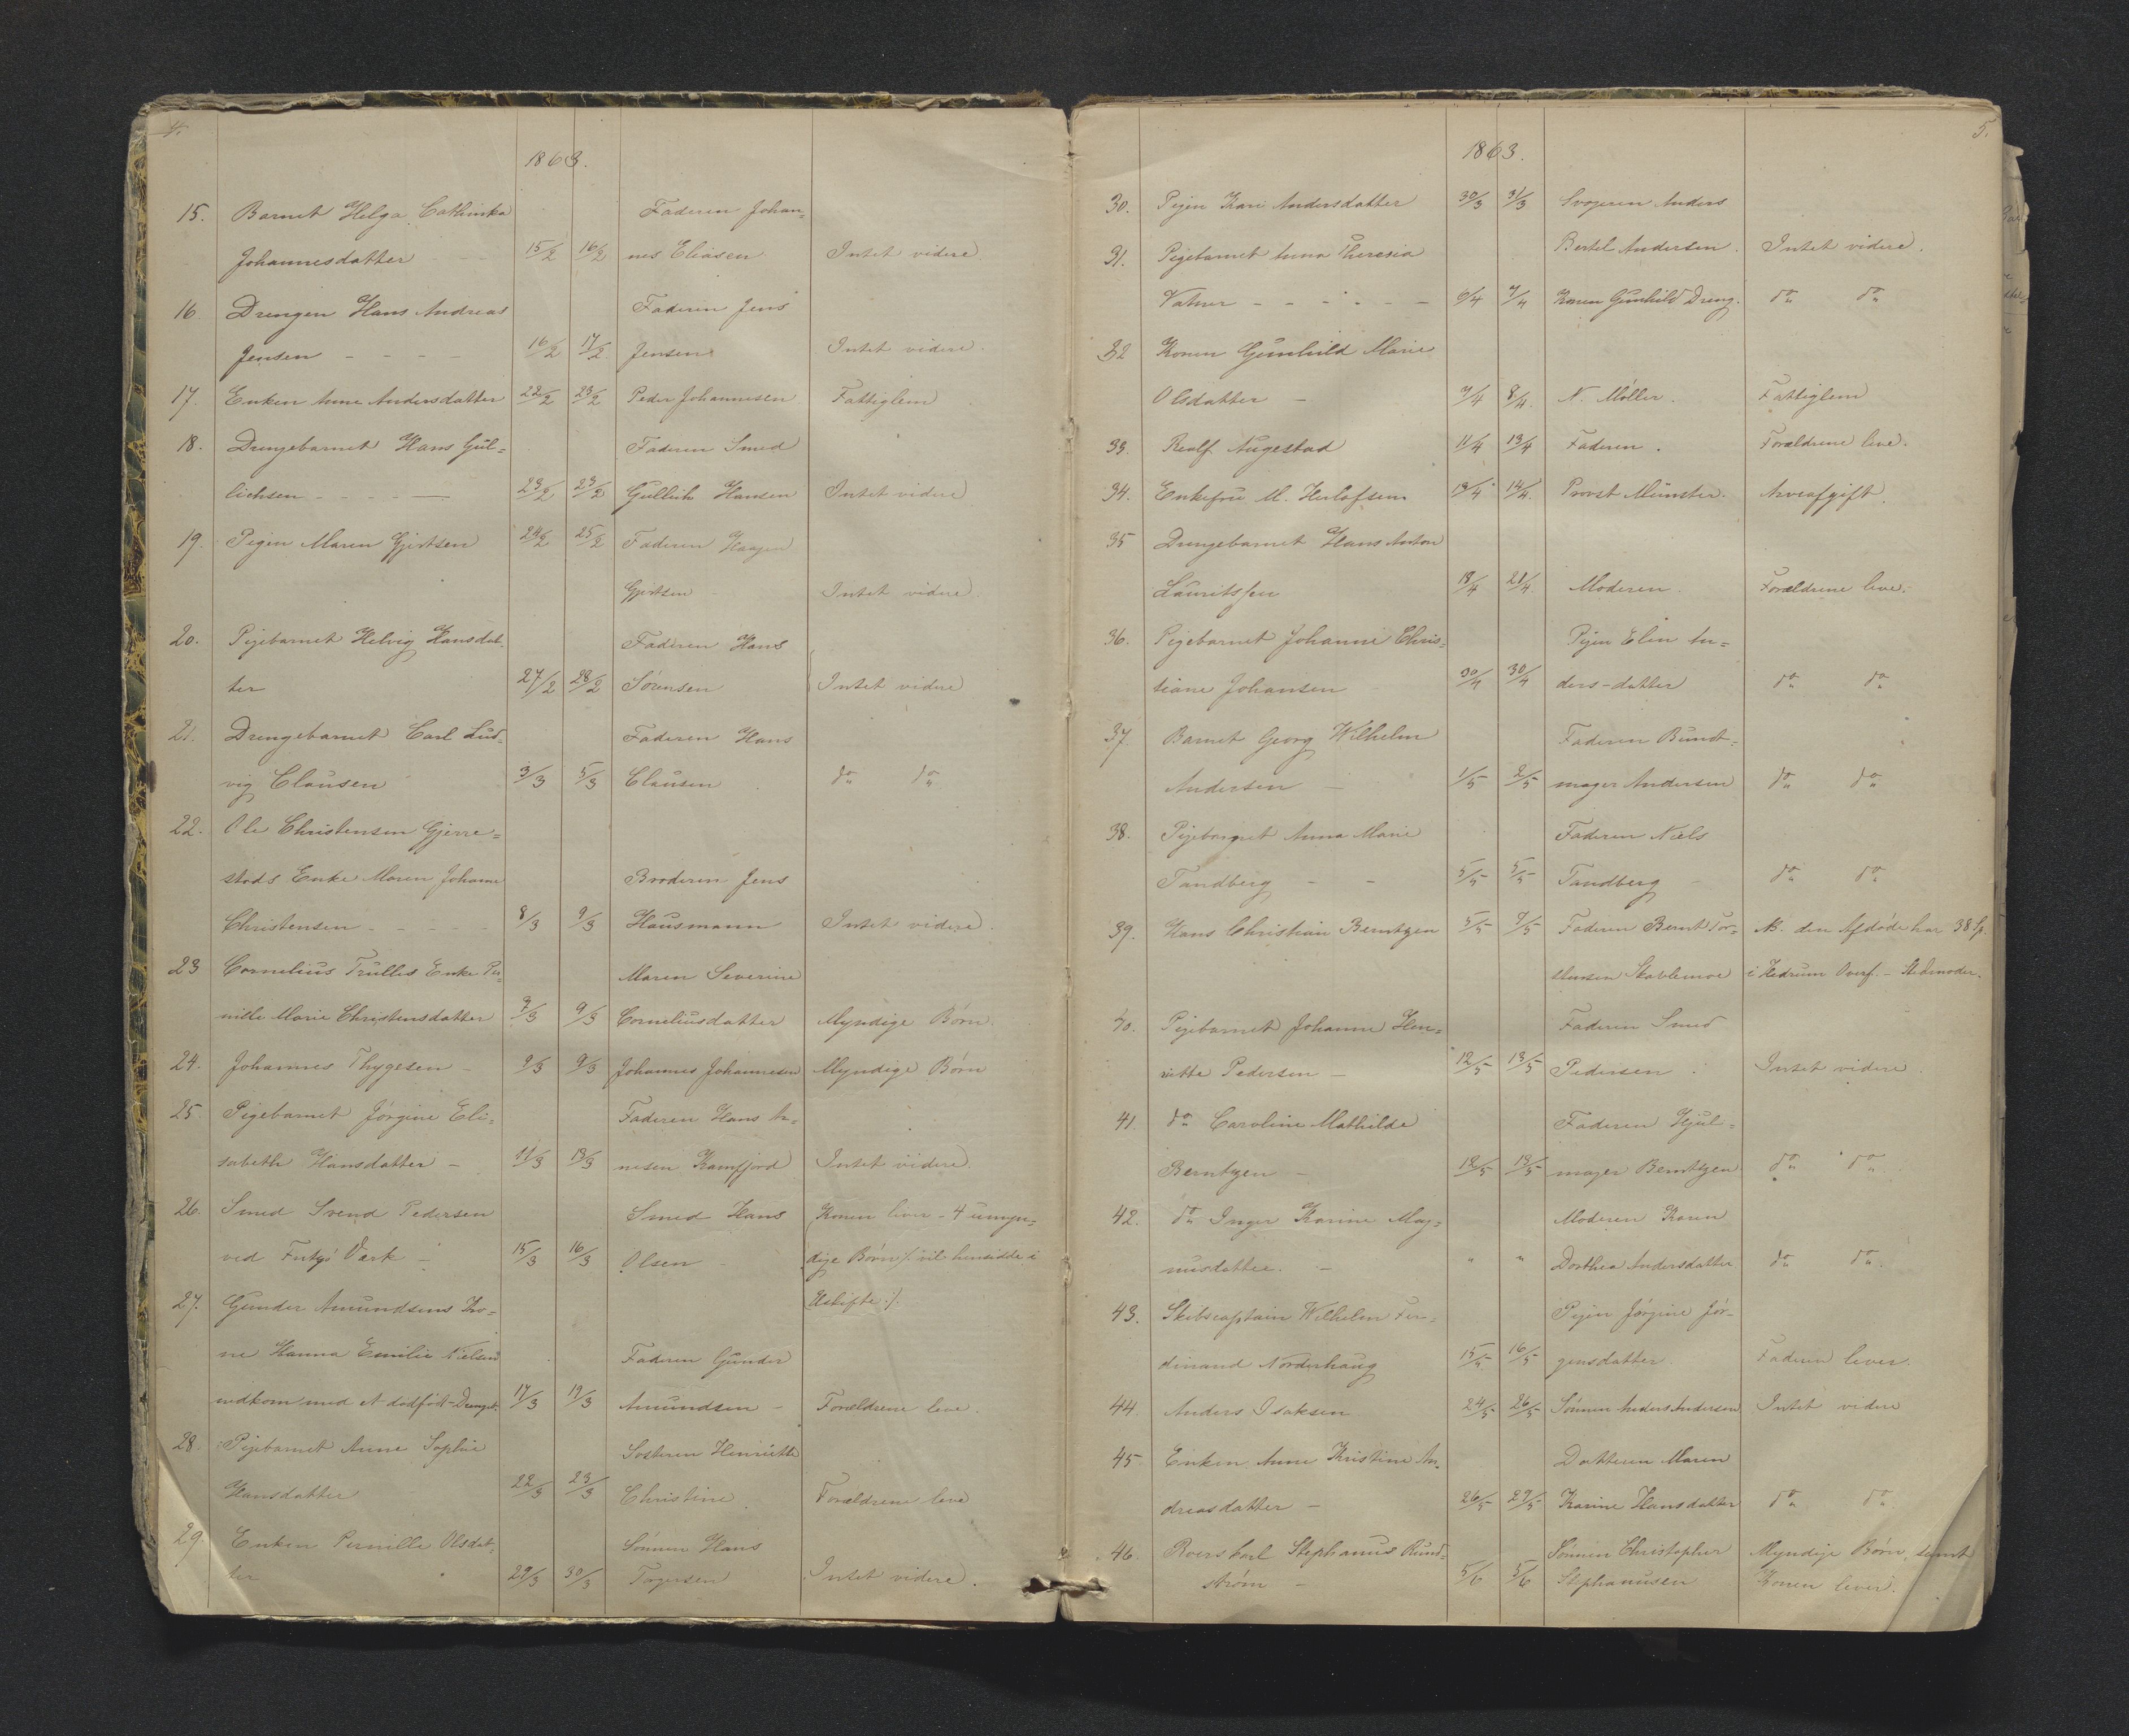 4.
1863.
15. Barnet Helga Cathinka Faderen Johan-
Johannesdatter 15/2 16/2 nes Eliasen Intet videre
16 Drengen Hans Andreas Faderen Jens
Jensen - - - - 16/2 17/2 Jensen Intet videre.
17. Enken Anne Andersdatter 22/2 23/2 Peder Johannesen Fattiglem
18. Drengebarnet Hans Gul=
Faderen Smed
lichsen - - - - 23/2 23/2 Gullich Hansen Intet videre
19. Pigen Maren Gjertsen 24/2 25/2 Faderen Haagen
Gjertsen Intet videre
20. Pigebarnet Helvig Hansdat- Faderen Hans
ter 27/2 28/2 Sörensen Intet videre
21. Drengebarnet Carl Lud- Faderen Hans
vig Clausen 3/3 5/3 Clausen do do
22. Ole Christensen Gjerre=
stads Enke Maren Johanne Broderen Jens
Christensen - - - - 8/3 9/3 Hausmann Intet videre.
23 Cornelius Trulles Enke Per- Maren Severine
nille Marie Christensdatter 9/3 Corneliusdatter Myndige Börn.
24. Johannes Thygesen - 9/3 9/3 Johannes Johannesen Myndige Börn
25. Pigebarnet Jörgine Eli- Faderen Hans An-
sabeth Hansdatter - 11/3 13/3 nesen Kamfjord Intet videre.
26. Smed Svend Pedersen Smed Hans Konen lever - 4 umyn-
ved Fritzö Værk - 15/3 16/3 Olsen - dige Börn /: vil hensidde i
27. Gunder Amundsens Ko- Uskifte :/.
ne Hanna Emilie Nielsen Faderen Gunder
nedkom med et dödfödt Drengeb. 17/3 19/3 Amundsen - Forældrene leve.
28. Pigebarnet Anne Sophie Sösteren Henriette
Hansdatter 22/3 23/3 Christine Forældrene leve
29. Enken Pernille Olsdat- Sönnen Hans
ter 29/3 30/3 Torgersen Intet videre.
5.
1863.
30. Pigen Kari Andersdatter 30/3 31/3 Svogeren Anders
Bertel Andersen. Intet videre.
31. Pigebarnet Anna Theresia
Vatner - - - - - - 6/4 7/4 Konen Gunhild Dreng. do do
32 Konen Gunhild Marie
Olsdatter - 7/4 8/4. N. Möller. Fattiglem
33. Realf Augestad 11/4 13/4 Faderen. Forældrene leve.
34. Enkefru M. Herlofsen 13/4 14/4. Provst Münster. Arveafgift.
35 Drengebarnet Hans Anton
Lauritssen 18/4 21/4 Moderen. Forældrene leve.
36. Pigebarnet Johanne Chris- Pigen Elen An=
tiane Johansen 30/4 30/4 ders-datter do do
37. Barnet Georg Wilhelm Faderen Bundt-
Andersen - 1/5 2/5 mager Andersen do do
38. Pigebarnet Anna Marie Faderen Niels
Tandberg - - 5/5 5/5 Tandberg do do
39. Hans Christian Berntzen 5/5 7/5 Faderen Bernt Tor- NB. den Afdöde har 38 Sp.
stensen i Hedrum Overf. - Stedmoder.
40. Pigebarnet Johanne Hen- Faderen Smed
riette Pedersen - 12/5 13/5 Pedersen Intet videre
41. do Caroline Mathilde Faderen Hjul-
Berntzen - 12/5 13/5 mager Berntzen do do
42. do Inger Karine Mag- Moderen Karen
nusdatter. - " " Dorthea Andersdatter do do.
43. Skibscaptain Wilhelm Fer- Pigen Jörgine Jör-
dinand Norderhaug 15/5 16/5 gensdatter. Faderen lever.
44. Anders Isaksen 24/5 26/5 Sönnen Anders Andersen Intet videre
45. Enken Anne Kristine An- Datteren Maren
dreasdatter - 26/5 27/5 Karine Hansdatter do do
46. Roerskarl Stephanus Rund- Sönnen Christopher Myndige Börn, samt
ström - 5/6 5/6 Stephanusen Konen lever.